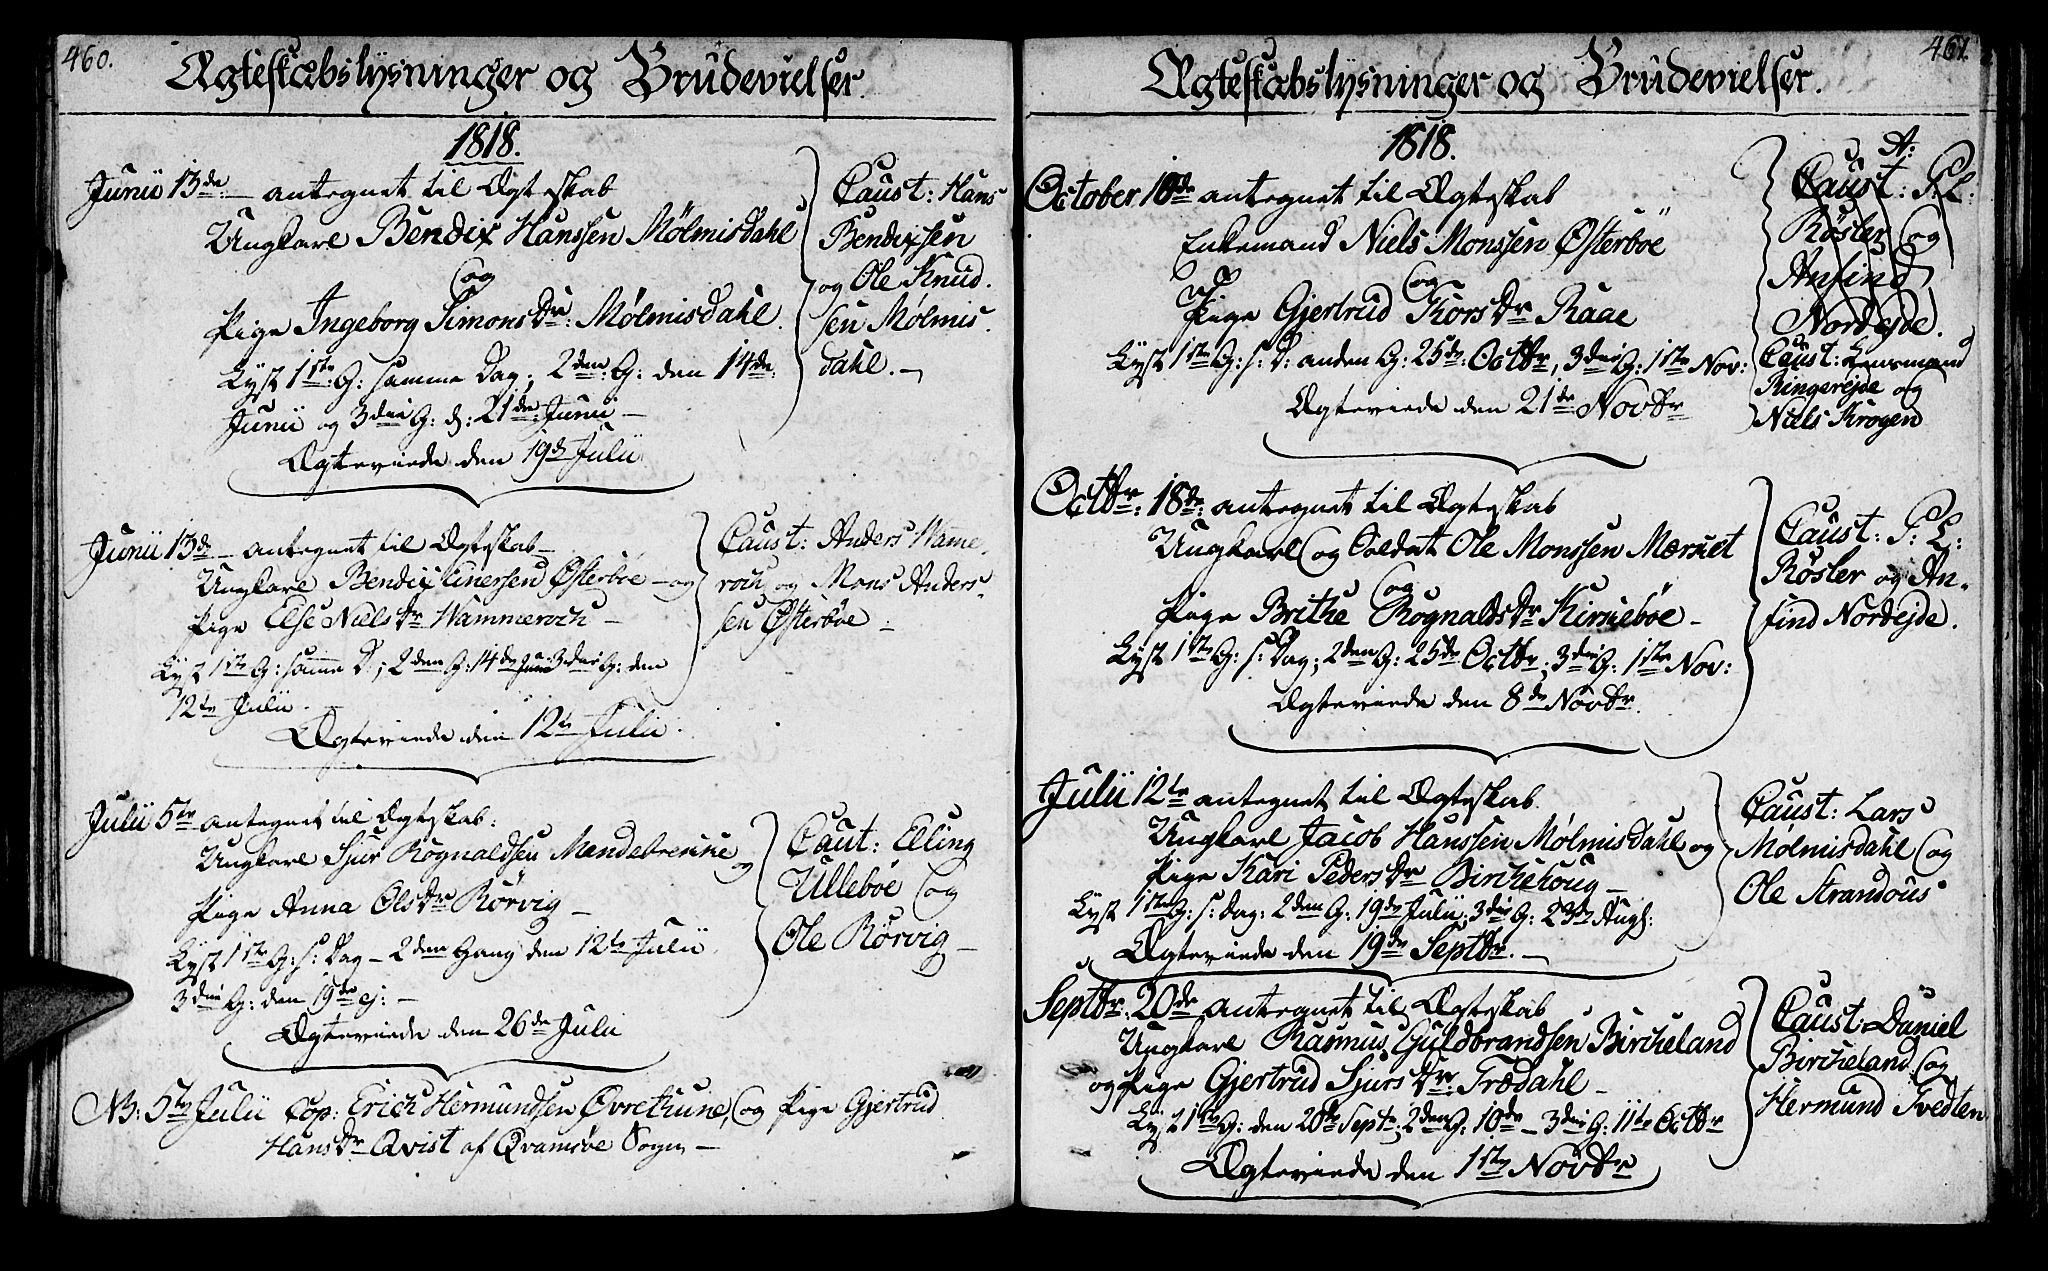 460.
Ægteskabslysninger og Brudevielser.
1818.
Junii 13de antegnet til Ægteskab
Ungkarl Bendix Hanssen Mølmisdahl
og
Pige Ingeborg Simons Dr: Mølmisdahl.
Lyst 1ste G: samme Dag; 2den G: den 14de
Junii og 3die G: d: 21de Junii
Ægteviede den 19de Julii
Caust: Hans
Bendixsen
og Ole Knud
sen Mølmis
dahl. –
Junii 13de – antegnet til Ægteskab –
Ungkarl Bendix Einersen Østerboe – og
Pige Else Niels Dr Wammeroch –
Lyst 1ste G: samme D.; 2den G: 14de Junii 3die G: den
12te Julii.
Ægteviede den 12te Julii.
Caust: Anders Wamme
roch og Mons Anders
sen Østerböe –
Julii 5te antegnet til Ægteskab:
Ungkarl Sjur Rognaldsen Mendebrecke og
Pige Anna Ols Dr Rørvig –
Lyst 1ste G: s: Dag – 2den Gang den 12te Julii
3die G: den 19de ej: –
Ægteviede den 26de Julii
Caut: Elling
Ulleböe og
Ole Rørvig –
NB: 5te Julii Cop: Erich Hermundsen Øvrethune, og Pige Gjertrud
Hans Dr Qvist af Qvamsøe Sogn –
461.
Ægteskabslysninger og Brudevielser.
1818.
October 18de antegnet til Ægteskab
Enkemand Niels Monssen Østerböe
og
Pige Gjertrud Thors Dr Raae
Lyst 1ste G: s: D: anden G: 25de Octbr, 3die G: 1ste Nov:
Ægteviede den 21de Novbr
A:
Caust: P. L:
Røsler og
Anfind
Nordejde.
Caust: Lensmand
Ringerejde og
Niels Krogen
Octbr: 18de: antegnet til Ægteskab
Ungkarl og Soldat Ole Monssen Mærnet
og
Pige Brithe Rognalds Dr Kirkeböe –
Lyst 1ste G: s: Dag; 2den G: 25de Octbr; 3die G: 1ste Nov:
Ægteviede den 8de Novbr.
Caust: P: L:
Røsler og An-
find Nordejde.
Julii 12te antegnet til Ægteskab.
Ungkarl Jacob Hanssen Mølmisdahl og
Pige Kari Peders Dr Birchehoug –
Lyst 1ste G: s: Dag: 2den G: 19de Julii; 3die G: 23de Aug:
Ægteviede den 19de Septbr. –
Caust: Lars
Mølmisdahl og
Ole Strandous
Septbr: 20de antegnet til Ægteskab
Ungkarl Rasmus Guldbrandsen Bircheland
og Pige Gjertrud Sjurs Dr: Trædahl –
Lyst 1ste G: den 20de Sept; 2den G: 10de – 3die G: 11te Octbr
Ægteviede den 1ste Novbr
Caust: Daniel
Bircheland og
Hermund Tvedten